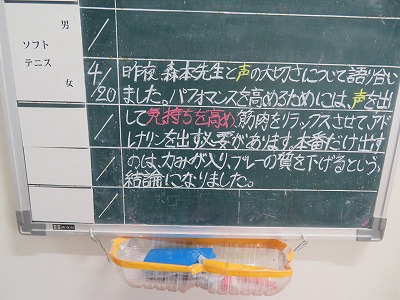 男
ソフト
テニス
女
4/20
昨夜、森本先生と声の大切さについて語り合い
ました。パフォマンスを高めるためには、声を出
して気持ちを高め筋肉をリラックスさせて、アド
レナリンを出す必要があります。本番だけ出す
のは、力みが入り、プレーの質を下げるという
結論になりました。